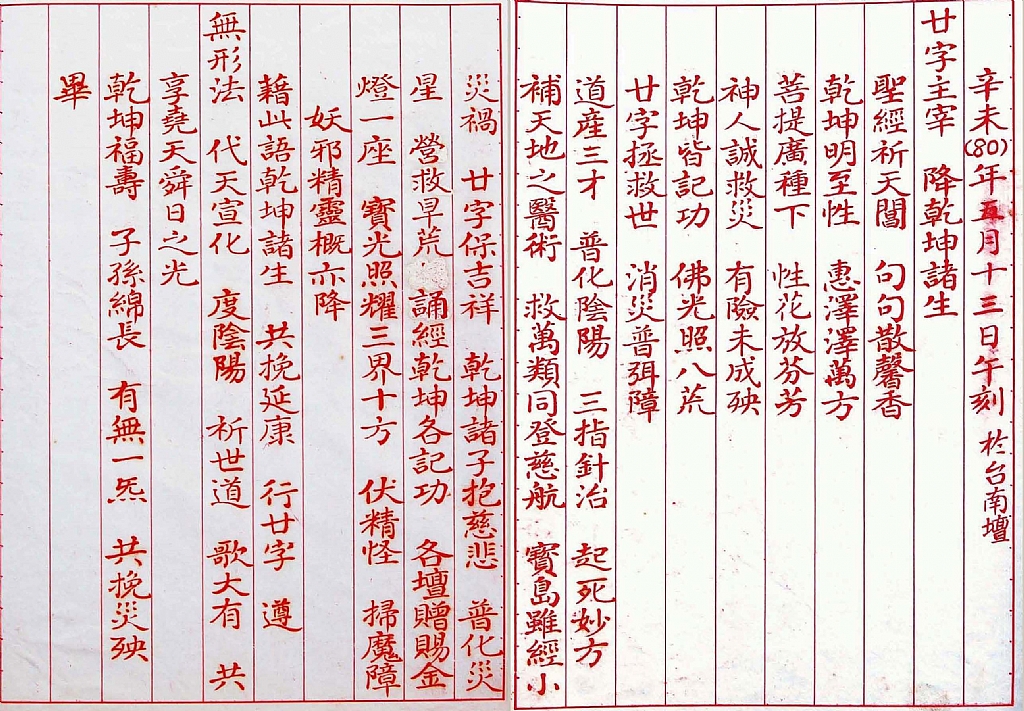 辛未(80)年五月十三日午刻 於台南壇
廿字主宰 降乾坤諸生
聖經祈天閶 句句散馨香
乾坤明至性 惠澤澤萬方
菩提廣種下 性花放芬芳
神人誠救災 有險未成殃
乾坤皆記功 佛光照八荒
廿字拯救世 消災普弭障
道產三才 普化陰陽 三指針治 起死妙方
補天地之醫術 救萬類同登慈航 寶島雖經小
災禍 廿字保吉祥 乾坤諸子抱慈悲 普化災
星 營救旱荒 誦經乾坤各記功 各壇贈賜金
燈一座 寶光照耀三界十方 伏精怪 掃魔障
妖邪精靈概亦降
藉此語乾坤諸生 共挽延康 行廿字 遵
無形法 代天宣化 度陰陽 祈世道 歌大有 共
享堯天舜日之光
乾坤福壽 子孫綿長 有無一炁 共挽災殃
畢